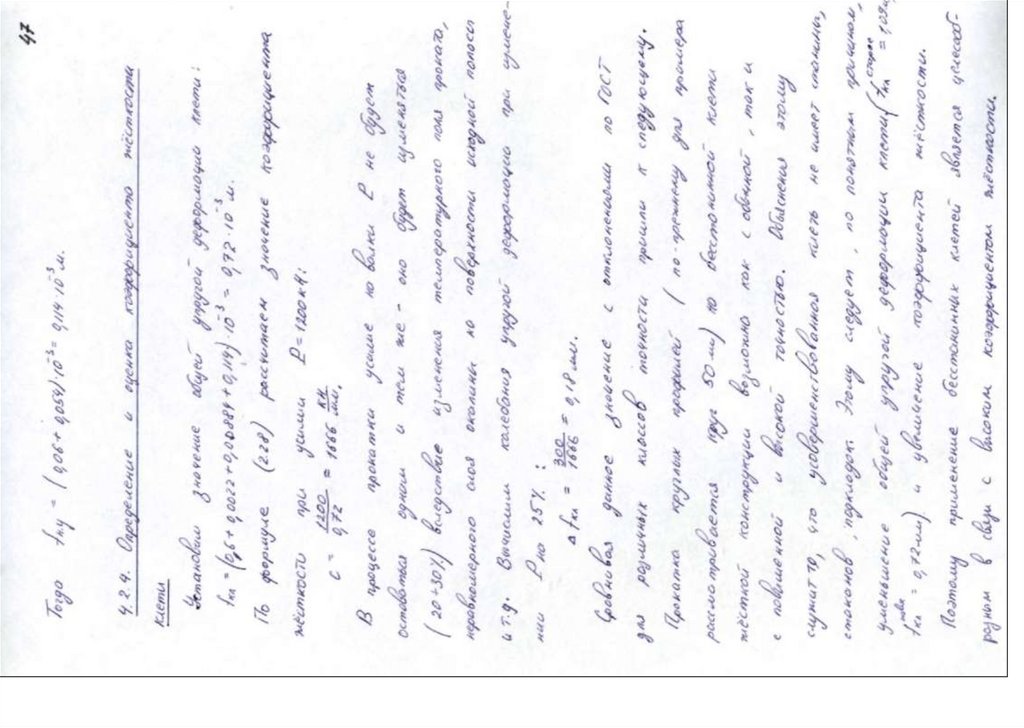 47
Тогда fку = (0,06 + 0,054)·10⁻³ = 0,114·10⁻³ м.
4.2.4. Определение и оценка коэффициента жёсткости
клети
Установим значение общей упругой деформации клети:
fкл = (0,6 + 0,0022 + 0,00884 + 0,114)·10⁻³ = 0,72·10⁻³ м.
По формуле (2.28) рассчитаем значение коэффициента
жёсткости при усилии P = 1200 кН:
c = 1200/0,72 = 1666 кН/мм.
В процессе прокатки усилие на валки P не будет
оставаться одним и тем же – оно будет изменяться
(20÷30%) вследствие изменения температурного поля проката,
неравномерного слоя окалины на поверхности исходной полосы
и т.д. Вычислим колебания упругой деформации при измене-
нии P на 25%:
Δ fкл = 300/1666 = 0,18 мм.
Сравнивая данное значение с отклонениями по ГОСТ
для различных классов точности пришли к следующему.
Прокатка круглых профилей (по-прежнему для примера
рассматривается круг 50 мм) на бесстанинной клети
жёсткой конструкции возможна как с обычной, так и
с повышенной и высокой точностью. Объяснения этому
служит то, что усовершенствованная клеть не имеет станины,
стаканов, подкладок. Этому следует, по понятным причинам,
уменьшение общей упругой деформации клети (fкл старое = 1,09 мм,
fкл новое = 0,72 мм) и увеличение коэффициента жёсткости.
Поэтому применение бесстанинных клетей является целесооб-
разным в связи с высоким коэффициентом жёсткости.